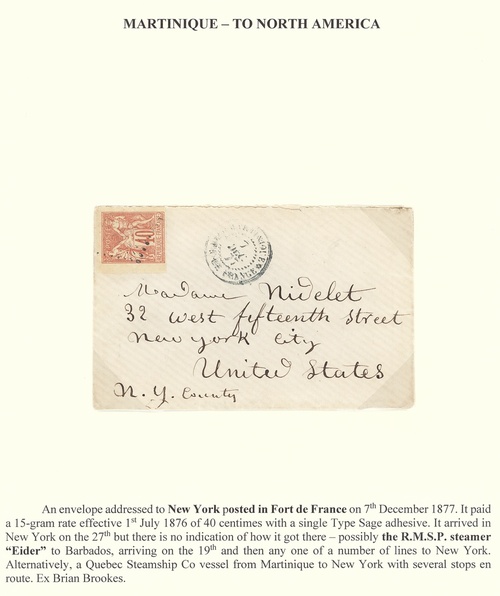 MARTINIQUE – TO NORTH AMERICA
40
MARTINIQUE
7
DEC
77
FRANCE
Madame Nidelet
32 West fifteenth Street
New York City
United States
N. Y. County
An envelope addressed to New York posted in Fort de France on 7th December 1877. It paid
a 15-gram rate effective 1st July 1876 of 40 centimes with a single Type Sage adhesive. It arrived in
New York on the 27th but there is no indication of how it got there – possibly the R.M.S.P. steamer
“Eider” to Barbados, arriving on the 19th and then any one of a number of lines to New York.
Alternatively, a Quebec Steamship Co vessel from Martinique to New York with several stops en
route. Ex Brian Brookes.